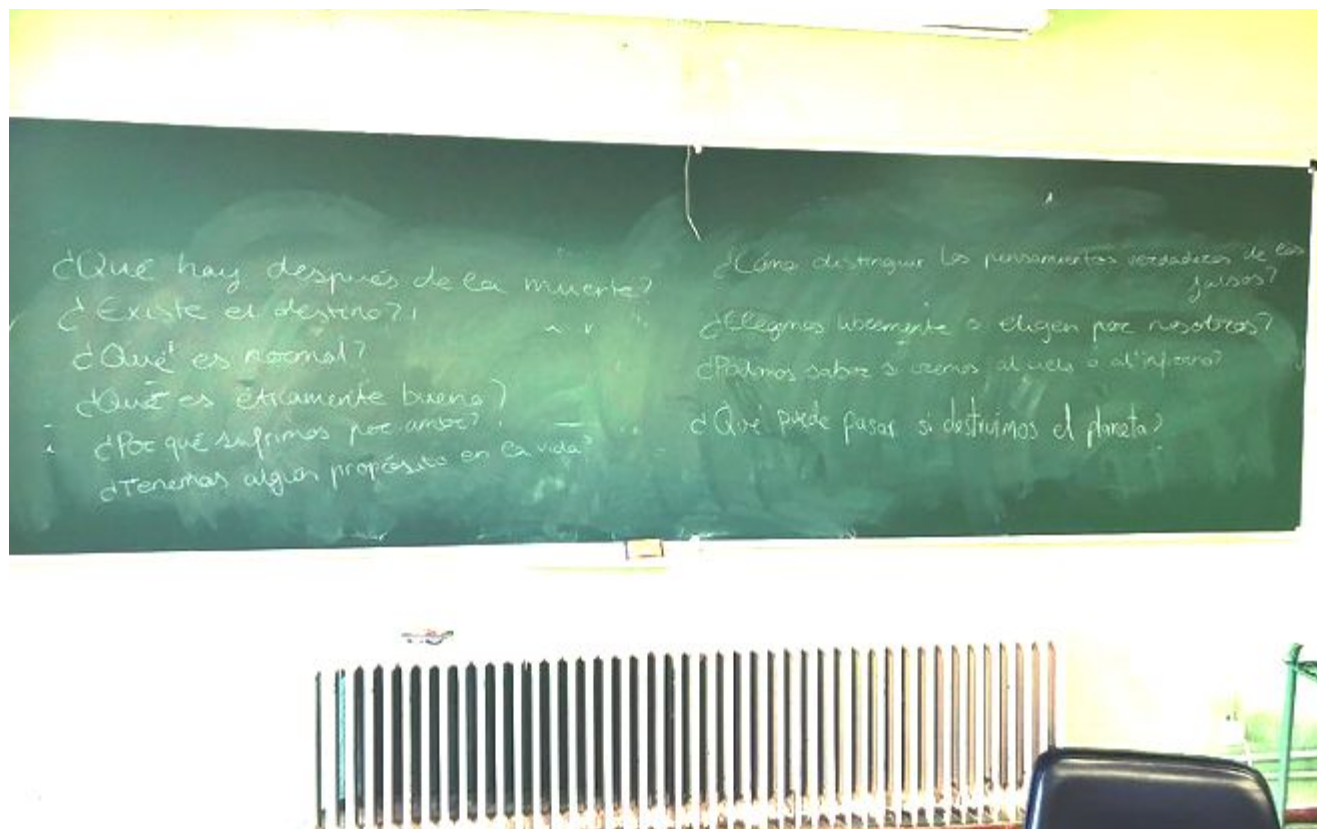 ¿Qué hay después de la muerte?
¿Existe el destino?
¿Qué es normal?
¿Qué es éticamente bueno?
¿Por qué sufrimos por amor?
¿Tenemos algún propósito en la vida?
¿Cómo distinguir los pensamientos verdaderos de los
falsos?
¿Elegimos libremente o eligen por nosotros?
¿Podemos saber si iremos al cielo o al infierno?
¿Qué puede pasar si destruimos el planeta?